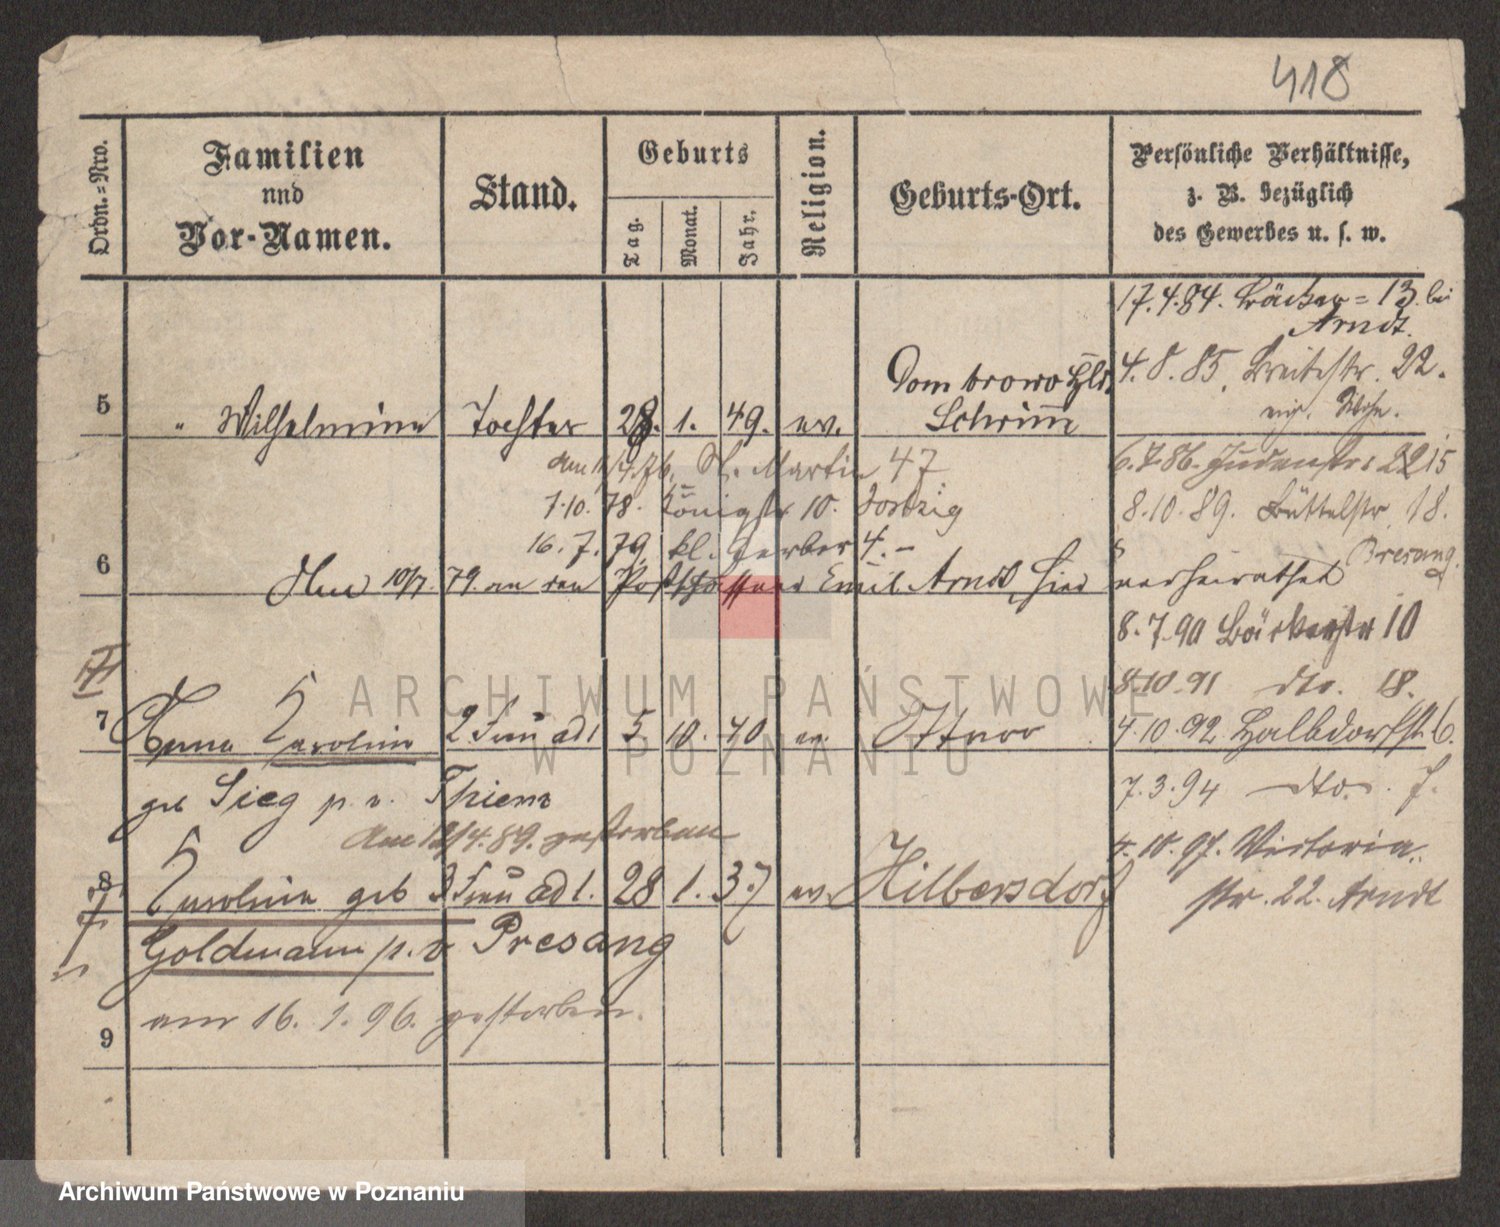 418
Ordn.=Nro.
Familien
und
Vor-Namen.
Stand.
Geburts
Tag.
Monat.
Jahr.
Religion.
Geburts-Ort.
Persönliche Verhältnisse,
z. B. bezüglich
des Gewerbes u. s. w.
17.4.84. Bäcker = 13. bei
Arndt.
4.8.85. Breitestr. 22.
Dombrowo Hld.
5 " Wilhelmine Tochter 28. 1. 49. ev. Schrimm
Am 11/4.76. St. Martin 47
6.7.86. Judenstr. 15
7.10.78. Königstr 10.
8.10.89. Büttelstr. 18.
16.7.79. kl. Gerber 4. –
Presang.
6 Am 10/7. 79. an den Postschaffner Emil Arndt, hier verheirathet
8.7.90 Bäckerstr 10
8.10.91 dto. 18.
7 Anna Karoline 2. Frau ad 1 5 10. 40 ev.
4.10.92. Halbdorfstr. 6.
geb Sieg p. v. Thiem
7.3.94 dto.
Am 12/4.89. gestorben
4.10.97. Victoria
8 Karoline geb 3 Frau ad 1. 28 1. 37 ev. Hilbersdorf
str. 22. Arndt
Goldmann p. v Presang
am 16. 1. 96. gestorben.
9
ARCHIWUM PAŃSTWOWE
W POZNANIU
Archiwum Państwowe w Poznaniu